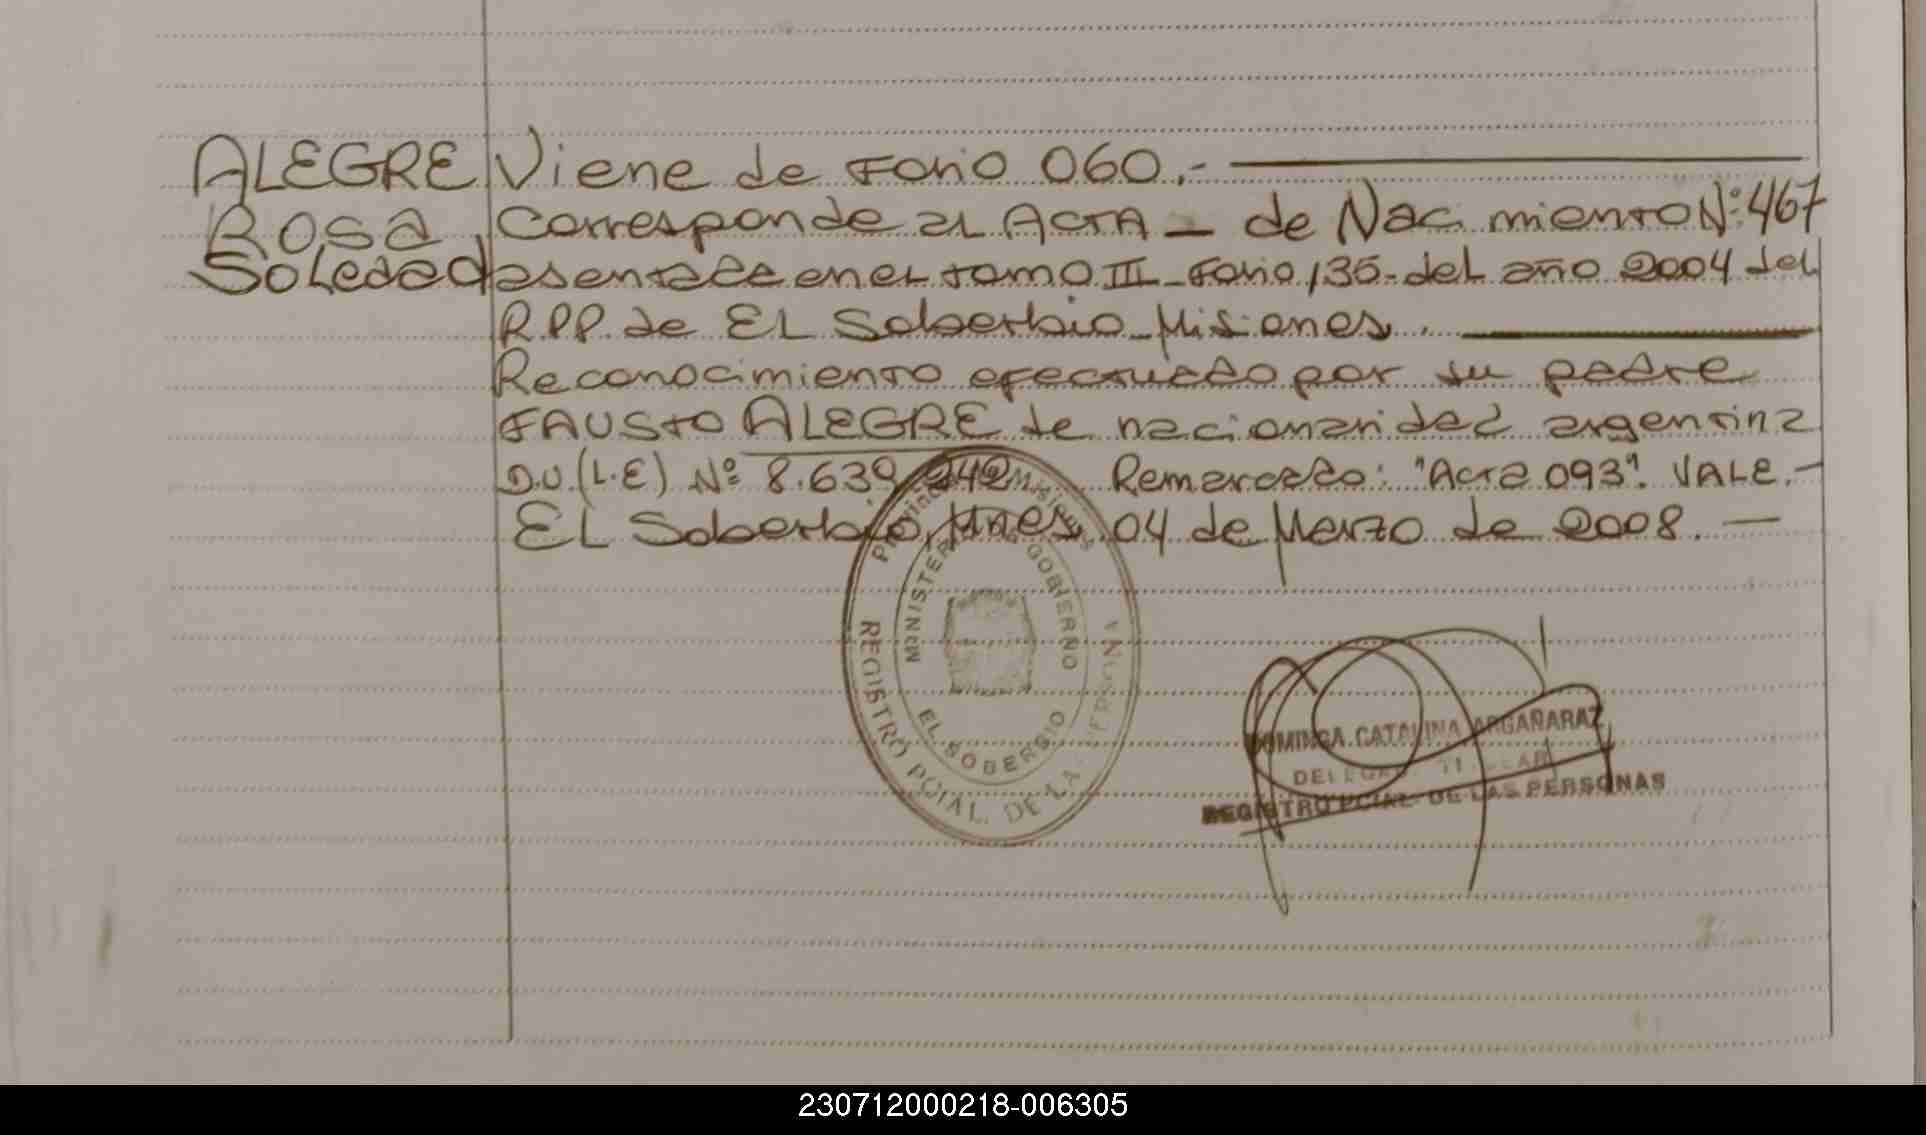 ALEGRE Viene de Folio 060.-
Rosa Corresponde al ACTA - de Nacimiento Nº: 467
Soledad asentada en el tomo III - Folio 135 - del año 2004 del
R.P.P. de EL Soberbio - Misiones.
Reconocimiento efectuado por su padre
FAUSTO ALEGRE de nacionalidad argentina
D.U. (L.E) Nº: 8.639.242 Remarcado: "Acta 093". VALE.-
EL Soberbio, Mnes, 04 de Marzo de 2008. -
Provincia Misiones
MINISTERIO GOBIERNO
EL SOBERBIO
REGISTRO PCIAL. DE LA
DOMINGA CATALINA ARGAÑARAZ
REGISTRO PCIAL. DE LAS PERSONAS
230712000218-006305